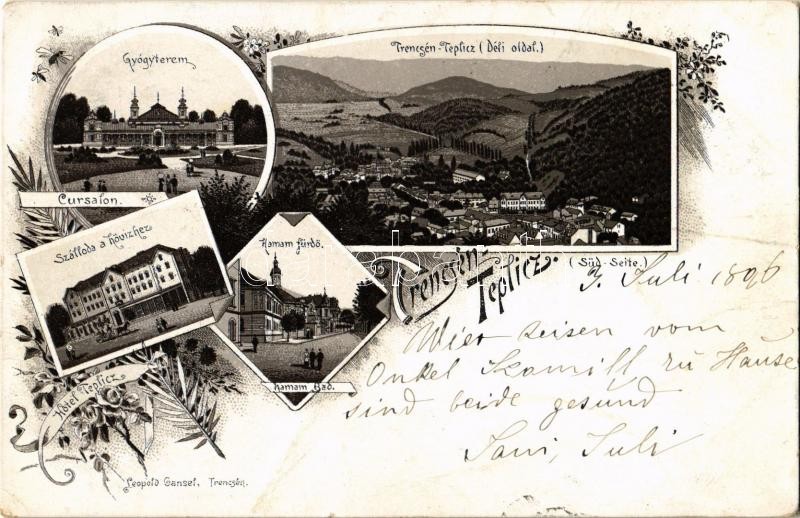 Gyógyterem
Trencsén-Teplicz (Déli oldal.)
Cursalon.
Szálloda a hévizhez
Hamam fürdő.
Trencsén-
Teplicz.
(Süd-Seite.)
9. Juli 1896
Wier reisen vom
Onkel Kamill zu Hause
sind beide gesund
Juli
Hamam Bad.
Hôtel Teplicz
Leopold Gansel, Trencsén.